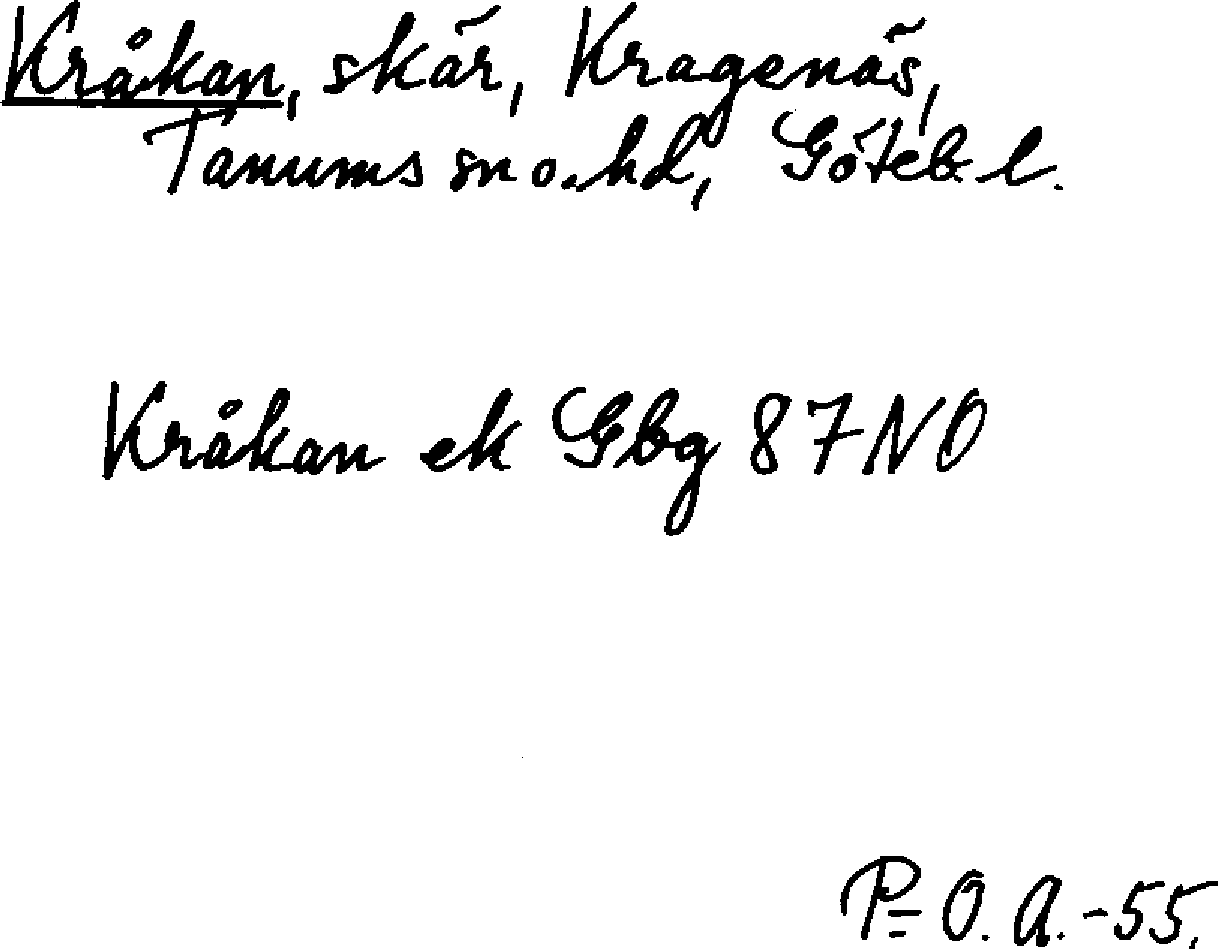 Kråkan, skär, Kragenäs,
Tanums sn o. hd, Göteb. l.
Kråkan ek Gbg 87 NO
P=O. A. -55.